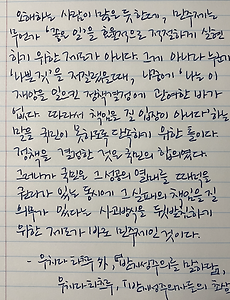 오해하는 사람이 많은 듯한데, 민주제는
무언가 '좋은 일'을 효율적으로 적절하게 실현
하기 위한 제도가 아니다. 그게 아니라 누군가
'나쁜 것'을 저질렀을 때, 나중에 '나는 이
재앙을 일으킨 정책결정에 관여한 바가
없다. 따라서 책임을 질 입장이 아니다' 하는
말을 국민이 못하도록 단속하기 위한 틀이다.
정책을 결정한 것은 국민의 합의였다.
그러니까 국민은 그 성공의 열매를 때먹을
권리가 있는 동시에 그 실패의 책임을 질
의무가 있다는 사고방식을 뒷받침하기
위한 제도가 바로 민주제인 것이다.
- 우치다 타츠루 外, 『반지성주의를 말하다』,
우치다 타츠루, 「반지성주의자들의 초상」